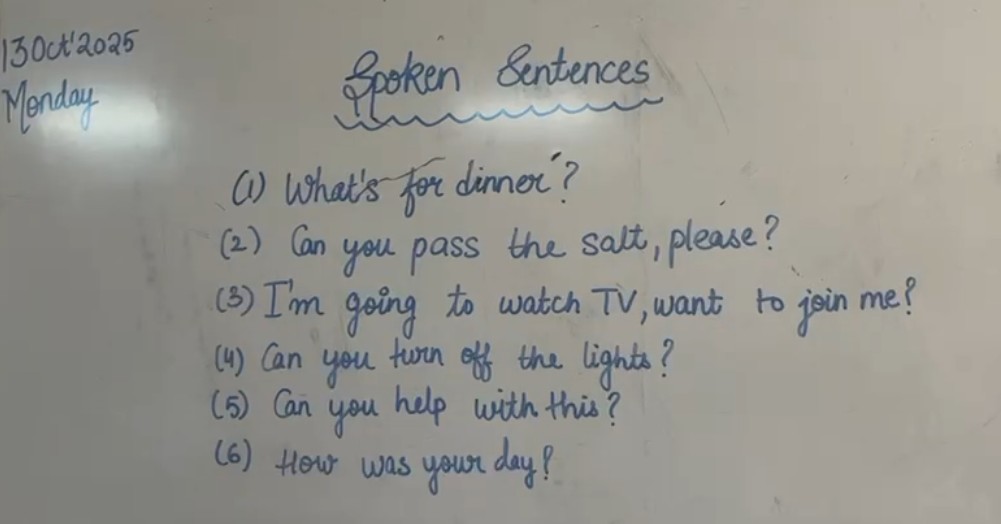 13 Oct'2025
Monday
Spoken Sentences
(1) What's for dinner?
(2) Can you pass the salt, please?
(3) I'm going to watch TV, want to join me?
(4) Can you turn off the lights?
(5) Can you help with this?
(6) How was your day?